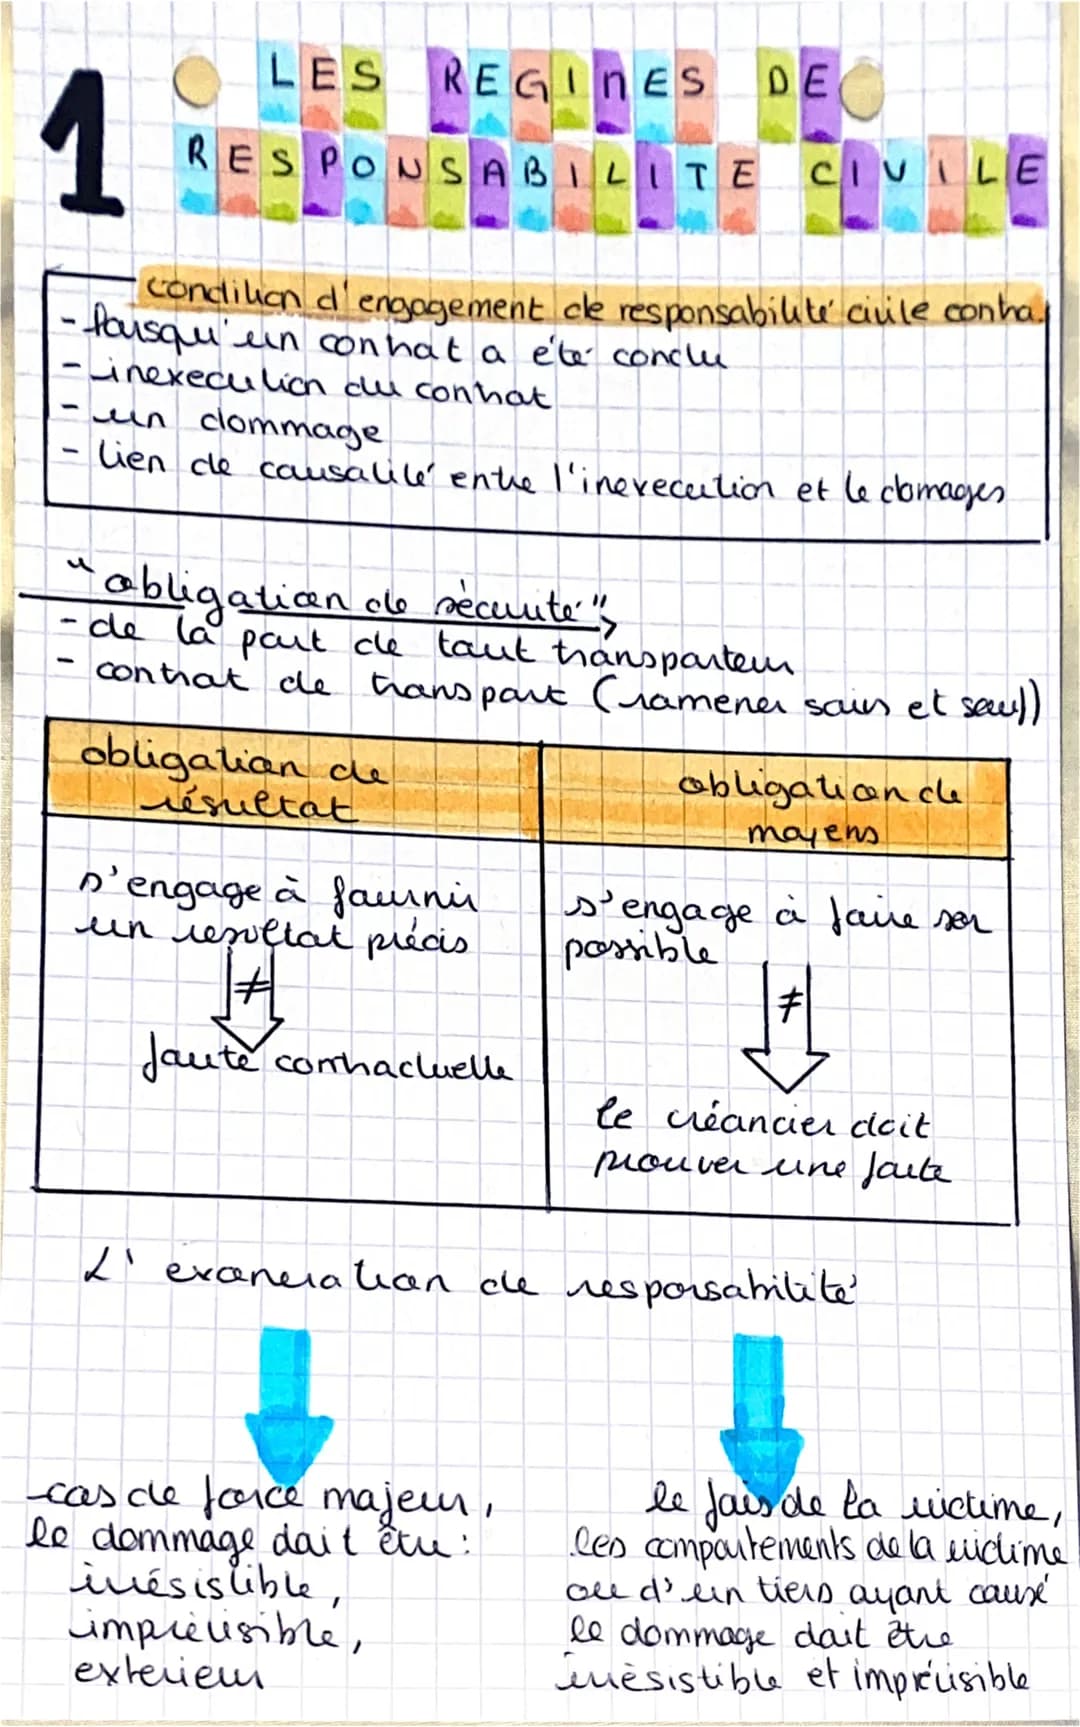 1
LES REGINES DE
RESPONSABILITE CIVILE
condition d'engagement de responsabilité civile contra.
- lorsqu'un contrat a été conclu
- inexecution du contrat
- un dommage
- lien de causalité entre l'inexecution et le domages
"obligation de sécurité"
- de la part de tout transporteur
- contrat de transport (ramener sain et sauf)
obligation de
résultat
obligation de
moyens
s'engage à fournir
un resultat précis
≠
faute contractuelle
s'engage à faire son
possible
≠
le créancier doit
prouver une faute
L'exoneration de responsabilité
cas de force majeur,
le dommage doit être :
irrésistible,
imprévisible,
exterieur
le fais de la victime,
les comportements de la victime
ou d'un tiers ayant causé
le dommage doit être
irrésistible et imprévisible